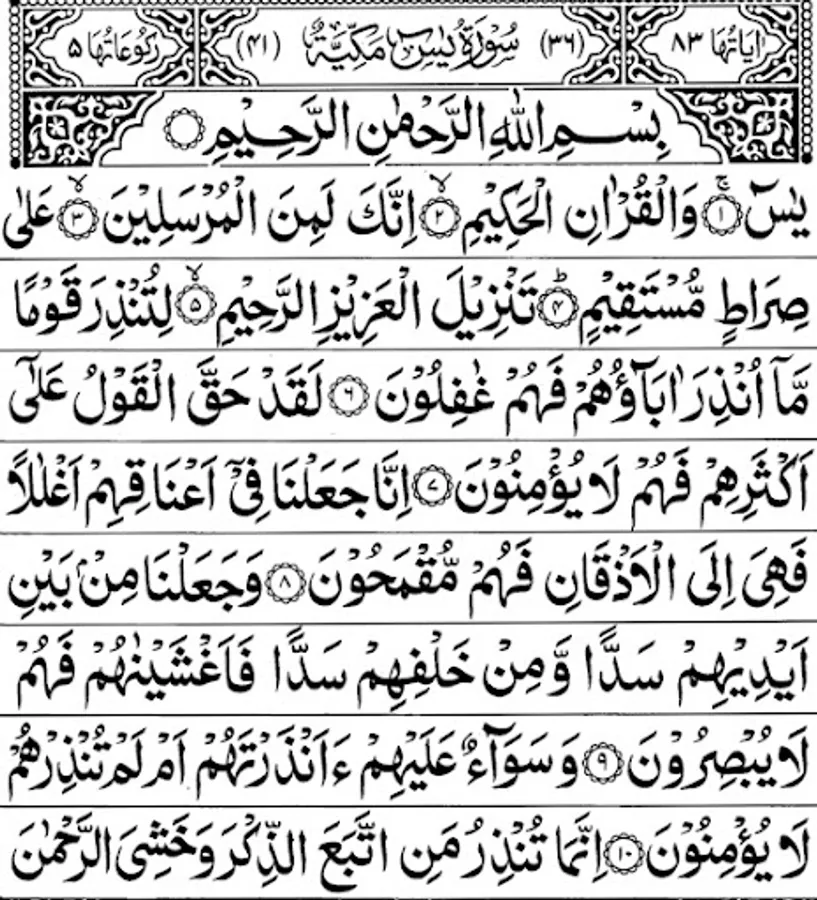 اٰيَاتُهَا ٨٣ (٣٦) سُوْرَةُ يٰسٓ مَكِّيَّةٌ (٤١) رُكُوْعَاتُهَا ٥
بِسْمِ اللّٰهِ الرَّحْمٰنِ الرَّحِيْمِ ○
يٰسٓ ۚ ﴿١﴾ وَالْقُرْاٰنِ الْحَكِيْمِ ۙ ﴿٢﴾ اِنَّكَ لَمِنَ الْمُرْسَلِيْنَ ۙ ﴿٣﴾ عَلٰى
صِرَاطٍ مُّسْتَقِيْمٍ ؕ ﴿٤﴾ تَنْزِيْلَ الْعَزِيْزِ الرَّحِيْمِ ۙ ﴿٥﴾ لِتُنْذِرَ قَوْمًا
مَّاۤ اُنْذِرَ اٰبَآؤُهُمْ فَهُمْ غٰفِلُوْنَ ﴿٦﴾ لَقَدْ حَقَّ الْقَوْلُ عَلٰۤى
اَكْثَرِهِمْ فَهُمْ لَا يُؤْمِنُوْنَ ﴿٧﴾ اِنَّا جَعَلْنَا فِيْۤ اَعْنَاقِهِمْ اَغْلٰلًا
فَهِىَ اِلَى الْاَذْقَانِ فَهُمْ مُّقْمَحُوْنَ ﴿٨﴾ وَجَعَلْنَا مِنْۢ بَيْنِ
اَيْدِيْهِمْ سَدًّا وَّمِنْ خَلْفِهِمْ سَدًّا فَاَغْشَيْنٰهُمْ فَهُمْ
لَا يُبْصِرُوْنَ ﴿٩﴾ وَسَوَآءٌ عَلَيْهِمْ ءَاَنْذَرْتَهُمْ اَمْ لَمْ تُنْذِرْهُمْ
لَا يُؤْمِنُوْنَ ﴿١٠﴾ اِنَّمَا تُنْذِرُ مَنِ اتَّبَعَ الذِّكْرَ وَخَشِىَ الرَّحْمٰنَ